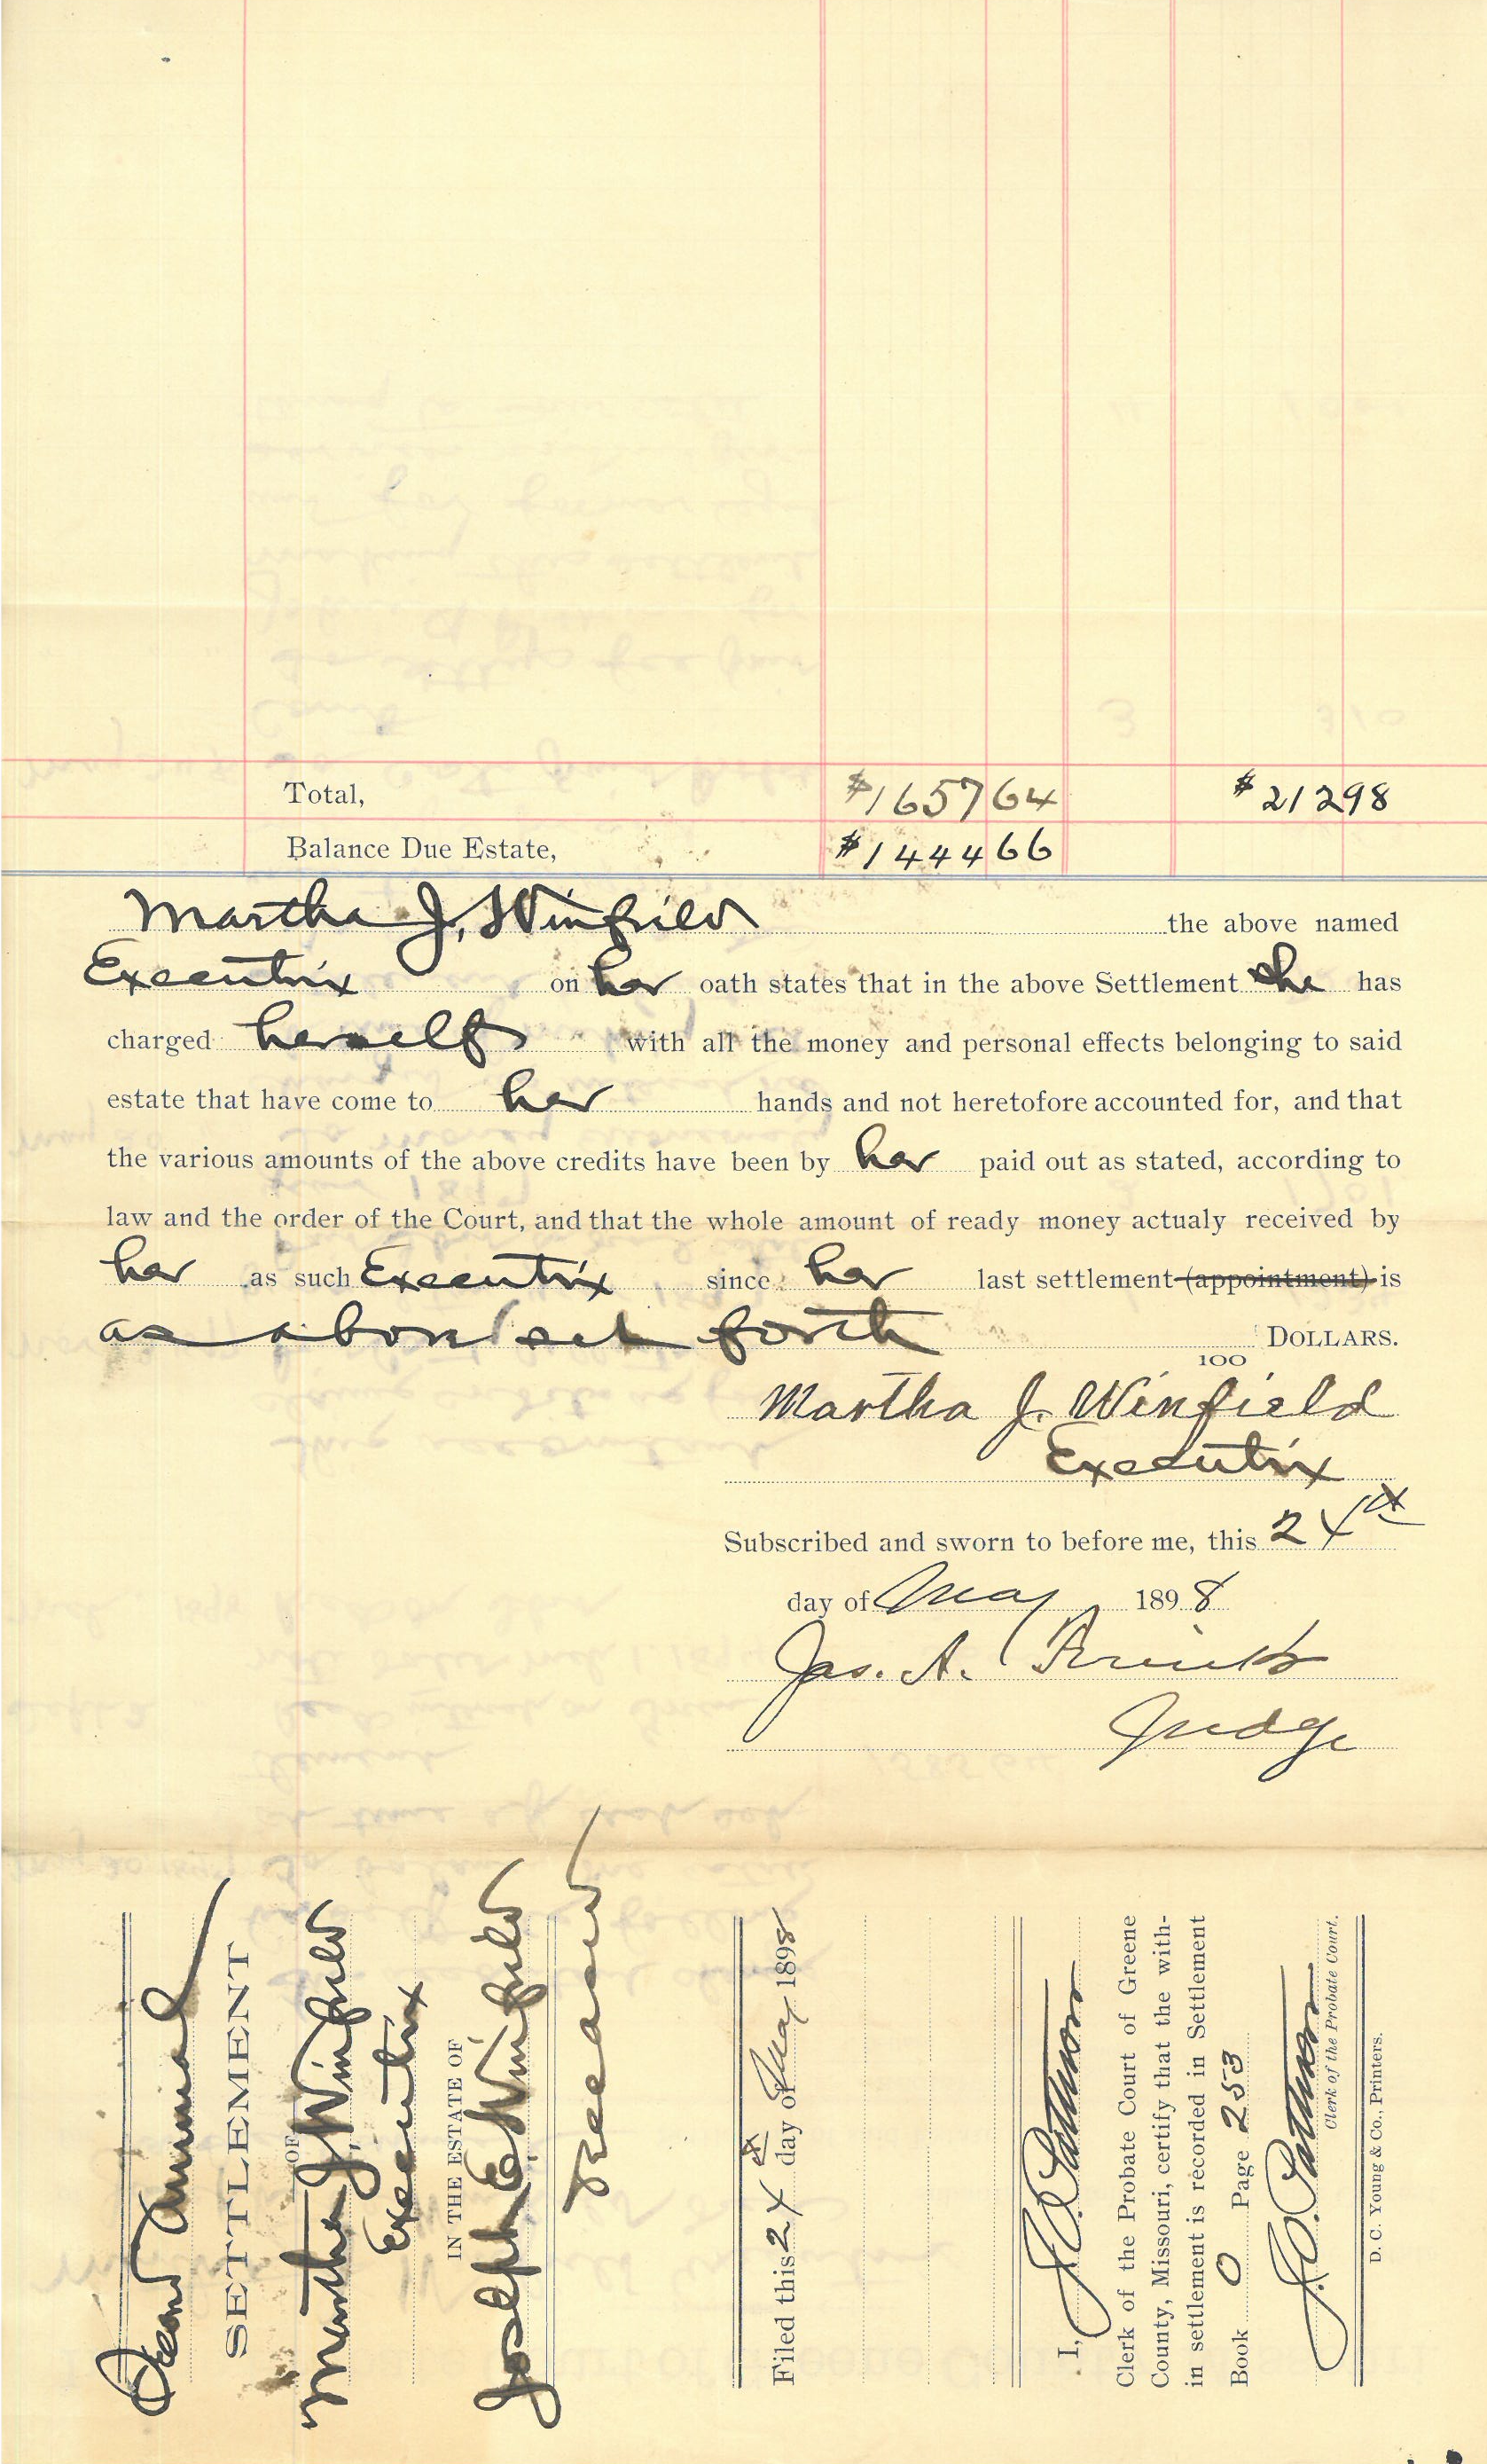 Total, $1657 64 $212 98
Balance Due Estate, $1444 66
Martha J. Winfield the above named
Executrix on her oath states that in the above Settlement she has
charged herself with all the money and personal effects belonging to said
estate that have come to her hands and not heretofore accounted for, and that
the various amounts of the above credits have been by her paid out as stated, according to
law and the order of the Court, and that the whole amount of ready money actualy received by
her as such Executrix since her last settlement (appointment) is
as above set forth DOLLARS.
100
Martha J. Winfield
Executrix
Subscribed and sworn to before me, this 24th
day of May 1898
Jas. A.
Judge
Second Annual
SETTLEMENT
OF
Martha J. Winfield
Executrix
IN THE ESTATE OF
Joseph E. Winfield
Deceased
Filed this 24th day of May 1898
I,
Clerk of the Probate Court of Greene
County, Missouri, certify that the with-
in settlement is recorded in Settlement
Book O Page 253
Clerk of the Probate Court.
D. C. Young & Co., Printers.